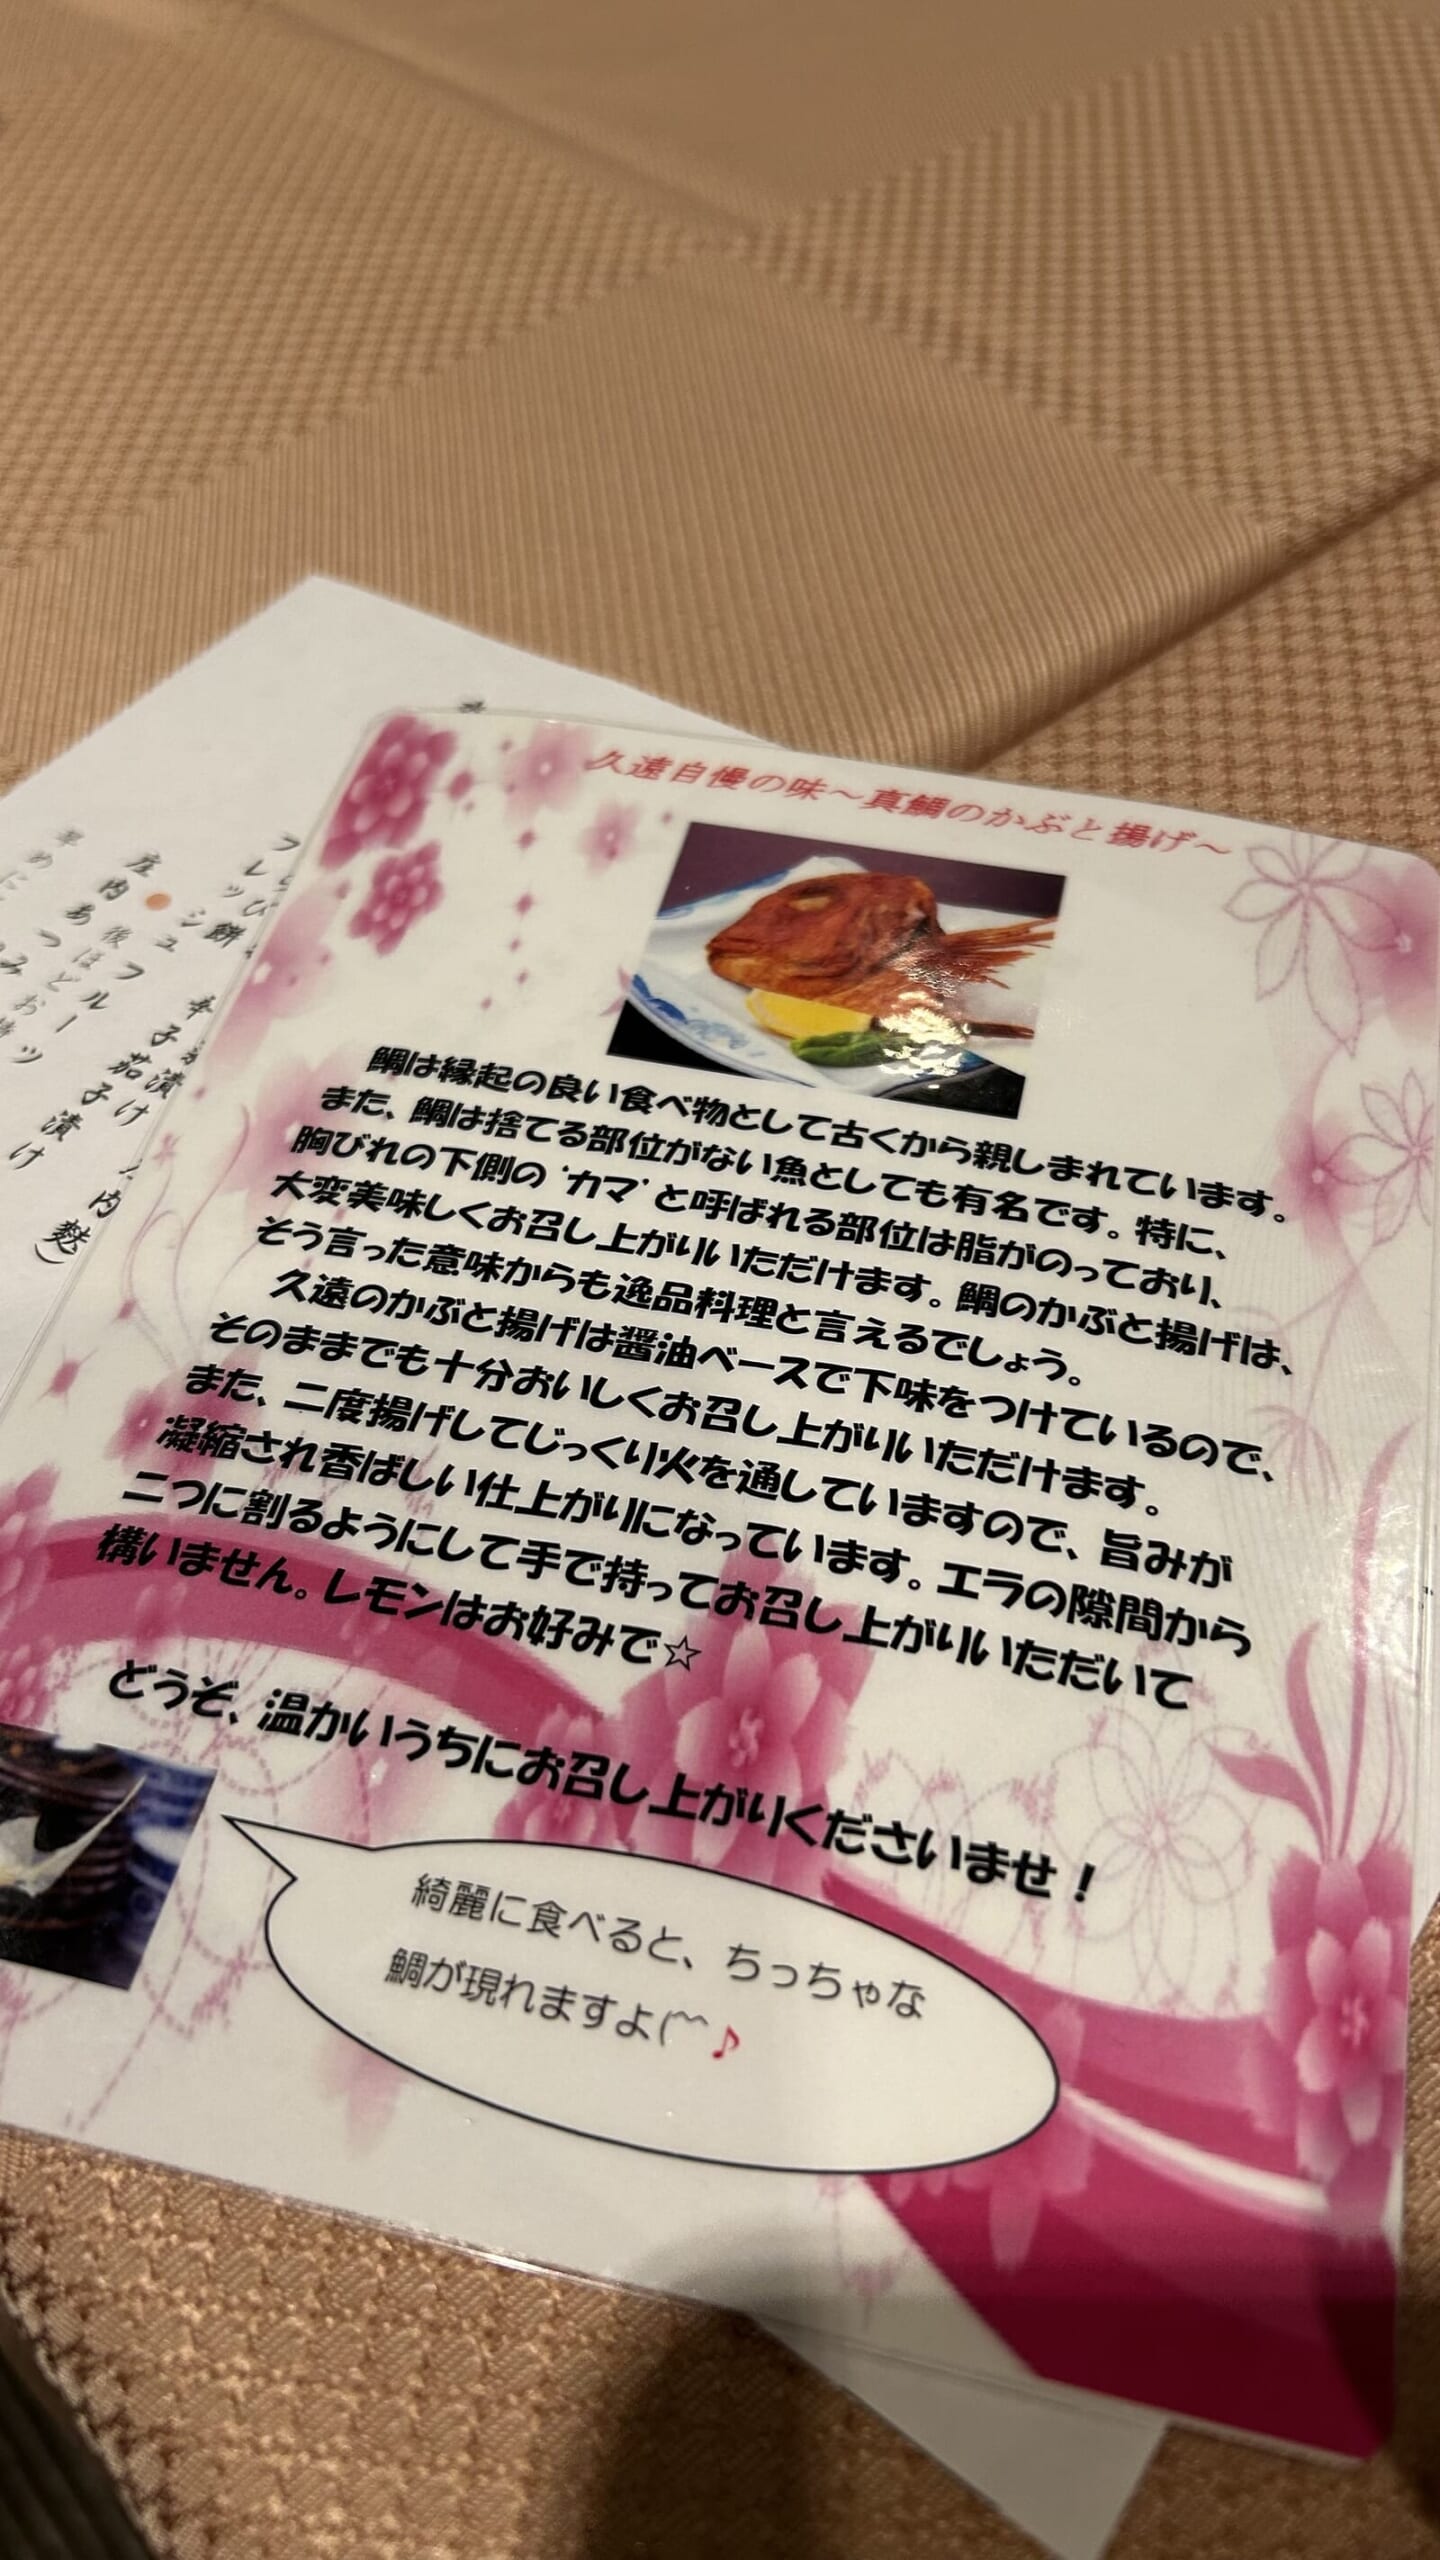 久遠自慢の味～真鯛のかぶと揚げ～
鯛は縁起の良い食べ物として古くから親しまれています。
また、鯛は捨てる部位がない魚としても有名です。特に、
胸びれの下側の‘カマ’と呼ばれる部位は脂がのっており、
大変美味しくお召し上がりいただけます。鯛のかぶと揚げは、
そう言った意味からも逸品料理と言えるでしょう。
久遠のかぶと揚げは醤油ベースで下味をつけているので、
そのままでも十分おいしくお召し上がりいただけます。
また、二度揚げしてじっくり火を通していますので、旨みが
凝縮され香ばしい仕上がりになっています。エラの隙間から
二つに割るようにして手で持ってお召し上がりいただいて
構いません。レモンはお好みで☆
どうぞ、温かいうちにお召し上がりくださいませ！
綺麗に食べると、ちっちゃな
鯛が現れますよ(^^♪
フレッシュフルーツ
辛子茄子漬け